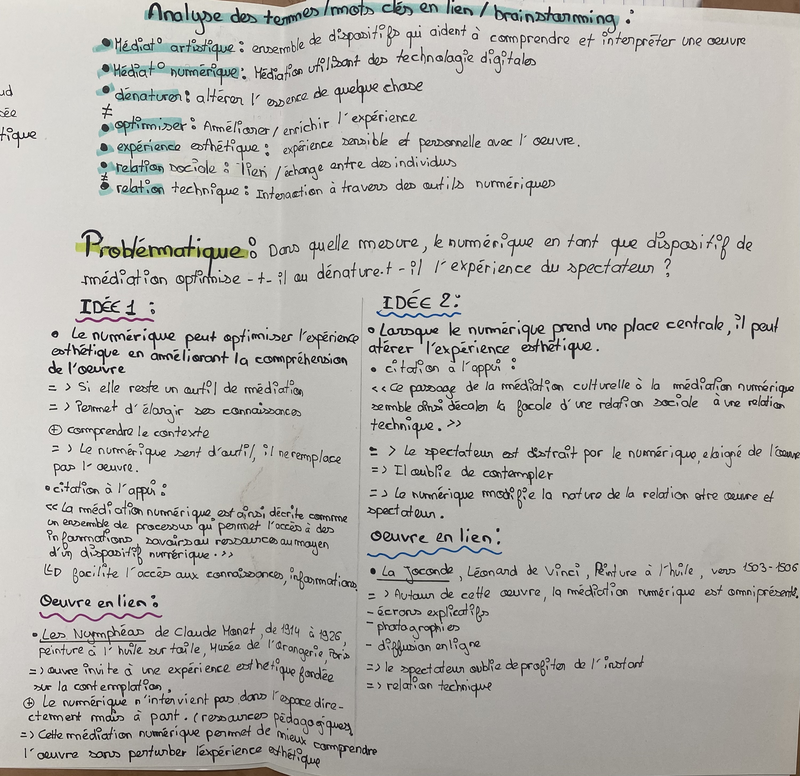 Analyse des termes/mots clés en lien / brainstorming :
• Médiat° artistique : ensemble de dispositifs qui aident à comprendre et interpréter une oeuvre
• Médiat° numérique : Médiation utilisant des technologie digitales
• dénaturer : altérer l'essence de quelque chose
≠
• optimiser : Améliorer/enrichir l'expérience
• expérience esthétique : expérience sensible et personnelle avec l'oeuvre.
• relation sociale : lien /échange entre des individus
≠
• relation technique : Interaction à travers des outils numériques
ud
sée
tique
Problématique : Dans quelle mesure, le numérique en tant que dispositif de
médiation optimise -t- il ou dénature.t - il l'expérience du spectateur ?
IDÉE 1 :
• Le numérique peut optimiser l'expérience
esthétique en améliorant la compréhension
de l'oeuvre
=> Si elle reste un outil de médiation
=> Permet d'élargir ses connaissances
⊕ comprendre le contexte
=> Le numérique sert d'outil, il ne remplace
pas l'oeuvre.
• citation à l'appui :
<< La médiation numérique est ainsi décrite comme
un ensemble de processus qui permet l'accès à des
informations, savoirs ou ressources au moyen
d'un dispositif numérique. >>
↳ facilite l'accès aux connaissances, informations
Oeuvre en lien :
• Les Nymphéas de Claude Monet, de 1914 à 1926,
peinture à l'huile sur toile, Musée de l'orangerie, Paris
=> œuvre invite à une expérience esthétique fondée
sur la contemplation.
⊕ Le numérique n'intervient pas dans l'espace dire-
ctement mais à part. (ressources pédagogiques)
=> Cette médiation numérique permet de mieux comprendre
l'oeuvre sans perturber l'expérience esthétique
IDÉE 2 :
• Lorsque le numérique prend une place centrale, il peut
atérer l'expérience esthétique.
• citation à l'appui :
<< Ce passage de la médiation culturelle à la médiation numérique
semble ainsi décaler la focale d'une relation sociale à une relation
technique. >>
=> Le spectateur est distrait par le numérique, eloigné de l'œuvre
=> Il oublie de contempler
=> Le numérique modifie la nature de la relation etre oeuvre et
spectateur.
Oeuvre en lien :
• La Joconde, Léonard de Vinci, Peinture à l'huile, vers 1503-1506
=> Autour de cette oeuvre, la médiation numérique est omniprésente.
- écrans explicatifs
- photographies
- diffusion en ligne
=> le spectateur oublie de profiter de l'instant
=> relation technique